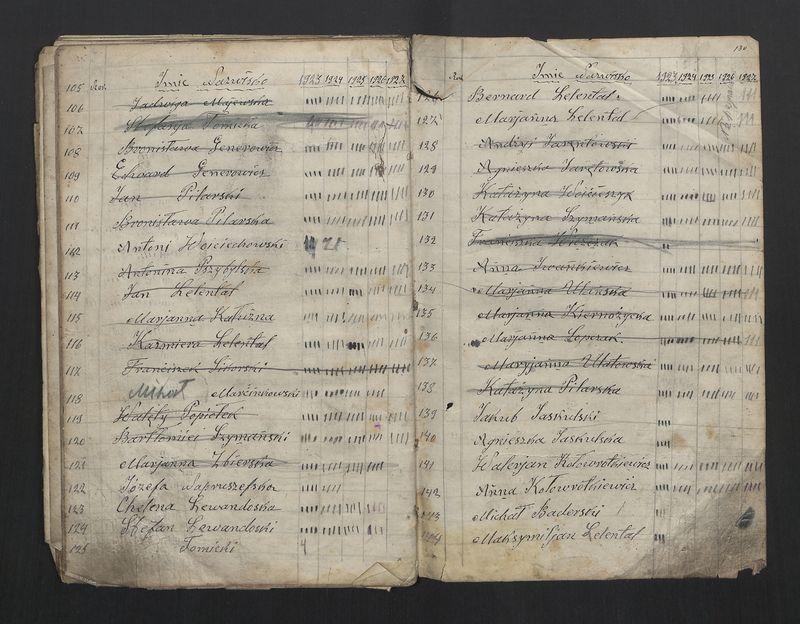 105 Imię Nazwisko 1923 1924 1925 1926 1927
106 Jadwiga Majewska
107 Stefanja Tomicka
108 Bronisława Generowicz
109 Edward Generowicz
110 Jan Pilarski
111 Bronisława Pilarska
112 Antoni Wojciechowski
113 Antonina Pszybylska
114 Jan Lelental
115 Marjanna
116 Kazmiera Lelental
117 Franciszek Sikorski
118 Michał Marcinkowski
119 Walęty Popiołek
120 Bartłomiei Szymański
121 Marjanna Zbierska
122 Józefa
123 Chelena Lewandoska
124 Stefan Lewandoski
125 Tomicki
130
Imię Nazwisko 1923 1924 1925 1926 1927
126 Bernard Lelental
127 Marjanna Lelental
128 Andrzyj
129 Agnieszka
130 Katażyna
131 Katażyna Szymańska
132 Franciszka
133 Anna Iwańkiewicz
134 Marjanna Ulańska
135 Marjanna Kiernożycka
136 Marjanna Łopczak
137 Maryjanna Ulatowska
138 Katażyna Pilarska
139 Jakub Jaskulski
140 Agnieszka Jaskulska
141 Walerjan Kołowrotkiewicz
142 Anna Kołowrotkiewicz
143 Michał Baderski
144 Maksymiljan Lelental